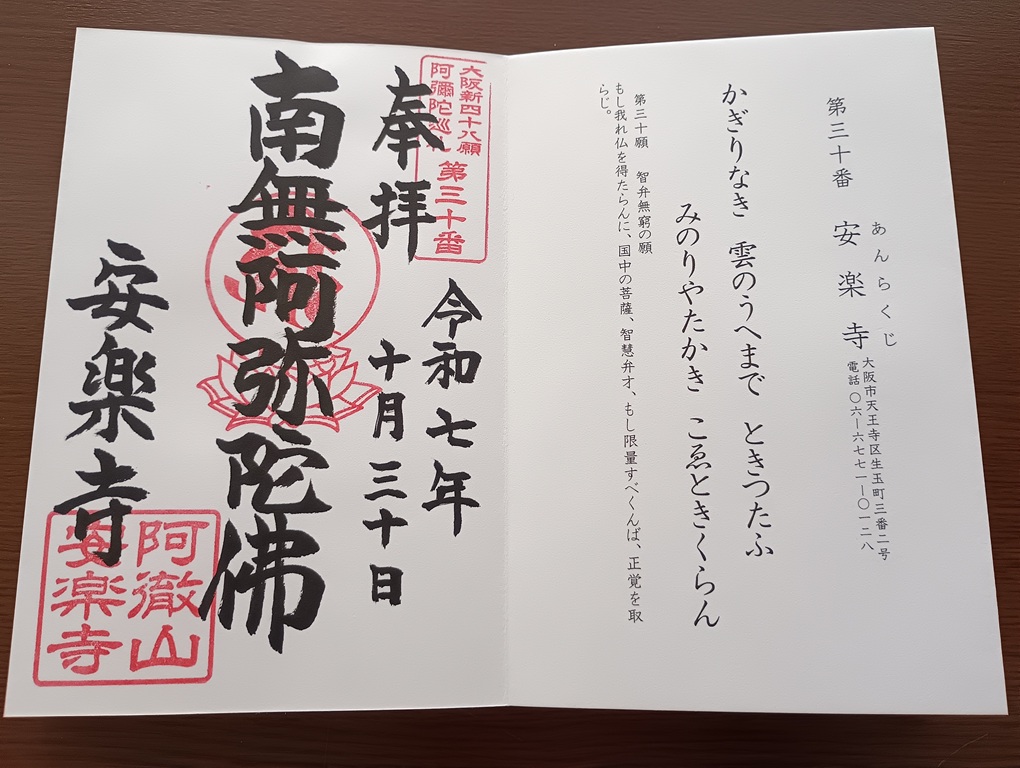 第三十番 安楽寺
あんらくじ
大阪市天王寺区生玉町三番二号
電話 〇六―六七七一―〇一二八
かぎりなき 雲のうへまで ときつたふ
みのりやたかき こゑときくらん
第三十願 智弁無窮の願
もし我れ仏を得たらんに、国中の菩薩、智慧弁才、もし限量すべくんば、正覚を取
らじ。
大阪新四十八願
阿彌陀巡礼
第三十番
奉拝
令和七年
十月三十日
南無阿弥陀佛
安楽寺
阿徹山
安楽寺